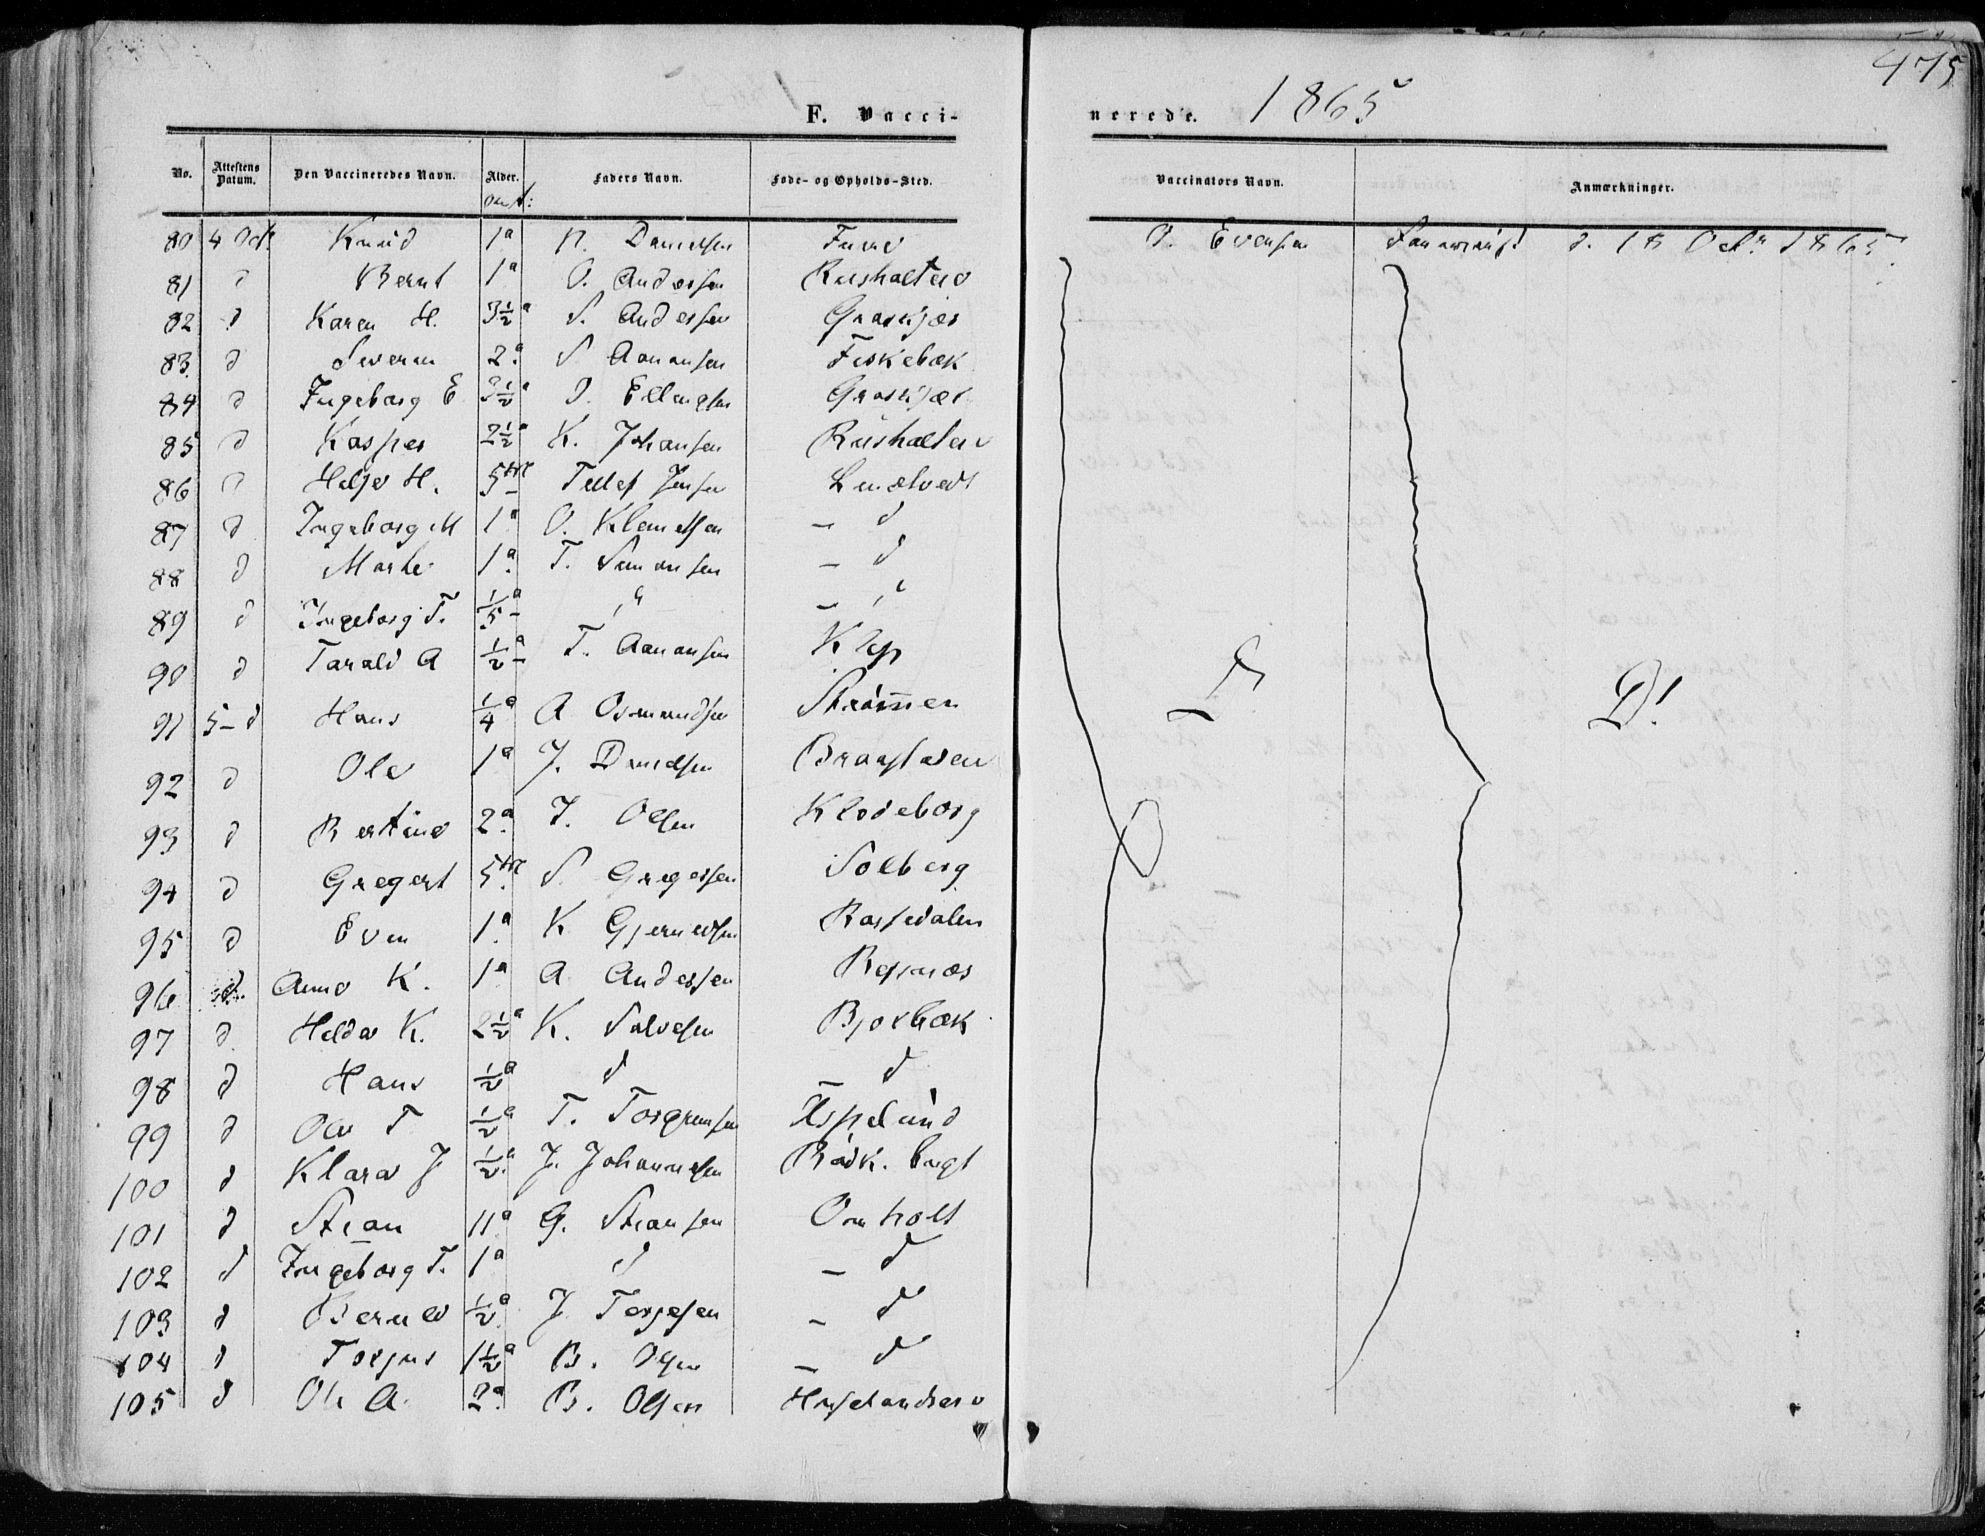 475
F. Vacci-
nerede. 1865
No. Attestens Datum. Den Vaccineredes Navn. Alder. Faders Navn. Føde- og Opholds-Sted. Vaccinators Navn. Anmærkninger.
80 4 Oct. Knud 1a Danielsen O. Evensen d. 18 Octr 1865.
81 d Bernt 1a O. Anderssen
82 d Karen H. 3½a S. Anderssen Graskjær
83 d Severin 2a S Aanonsen Fiskebæk
84 d Ingeborg E 3½a O. Ellingsen Graskjær
85 d Kasper 2½a K. Johansen
86 d Helje H. 5 Tellef Jensen
87 d Ingeborg M 1a O. Klemetsen – d
88 d Marte 1a T. Simonsen – d
89 d Ingeborg T. 1/5a " – "
90 d Tarald A ½a T. Aanonsen Klep
91 5– d Hans ¼a A Osmundsen Strømmen
92 d Ole 1a J. Danielsen
93 d Bertine 2a J. Olsen Klodeborg
94 d Gregert 5 S. Gregersen Solberg
95 d Even 1a K Gjerulfsen Rossedalen
96 d. Anne K. 1a A Anderssen
97 d. Helder K. 2½a K. Salvesen Bjorbæk
98 d Hans ½a d – d
99 d Ole T ½a T. Torgrimsen Espelund
100 d Klara J ½a J. Johannesen
101 d Stian 11a G. Stiansen Omholt
102 d Ingeborg T. 1a d – d
103 d ½a J Terjesen – d
104 d Torjus 1½a B. Olsen – d
105 d Ole A. 2a B. Olsen
D! D!